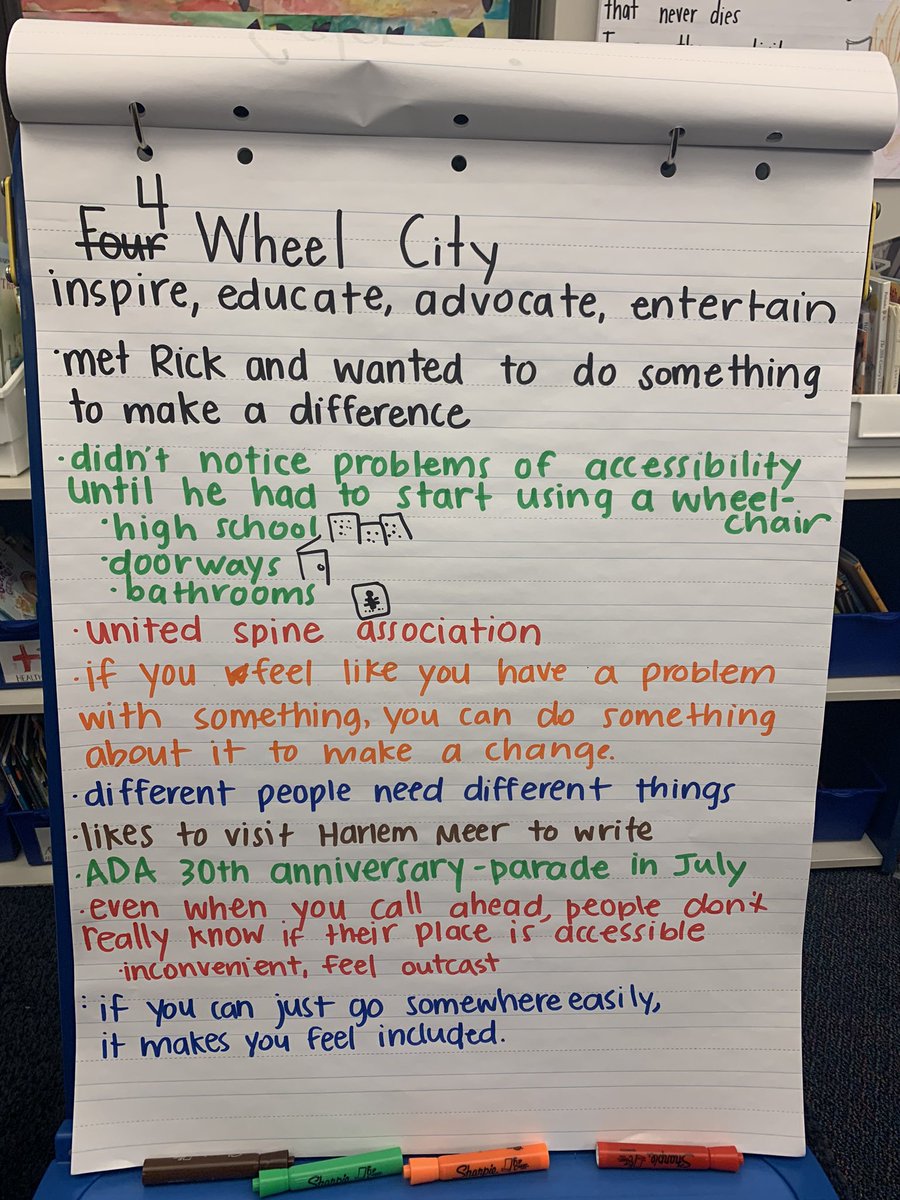 that never dies
4
Four Wheel City
inspire, educate, advocate, entertain
·met Rick and wanted to do something
to make a difference
·didn't notice problems of accessibility
until he had to start using a wheel-
chair
·high school
·doorways
·bathrooms
·united spine association
·if you feel like you have a problem
with something, you can do something
about it to make a change.
·different people need different things
·likes to visit Harlem Meer to write
·ADA 30th anniversary-parade in July
·even when you call ahead, people don't
really know if their place is accessible
·inconvenient, feel outcast
·if you can just go somewhere easily,
it makes you feel included.
HEALTH
Sharpie
Sharpie
Sharpie